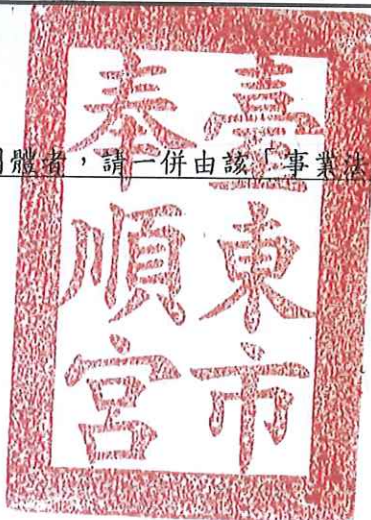 臺東市
奉順宮
體者，請一併由該「事業法